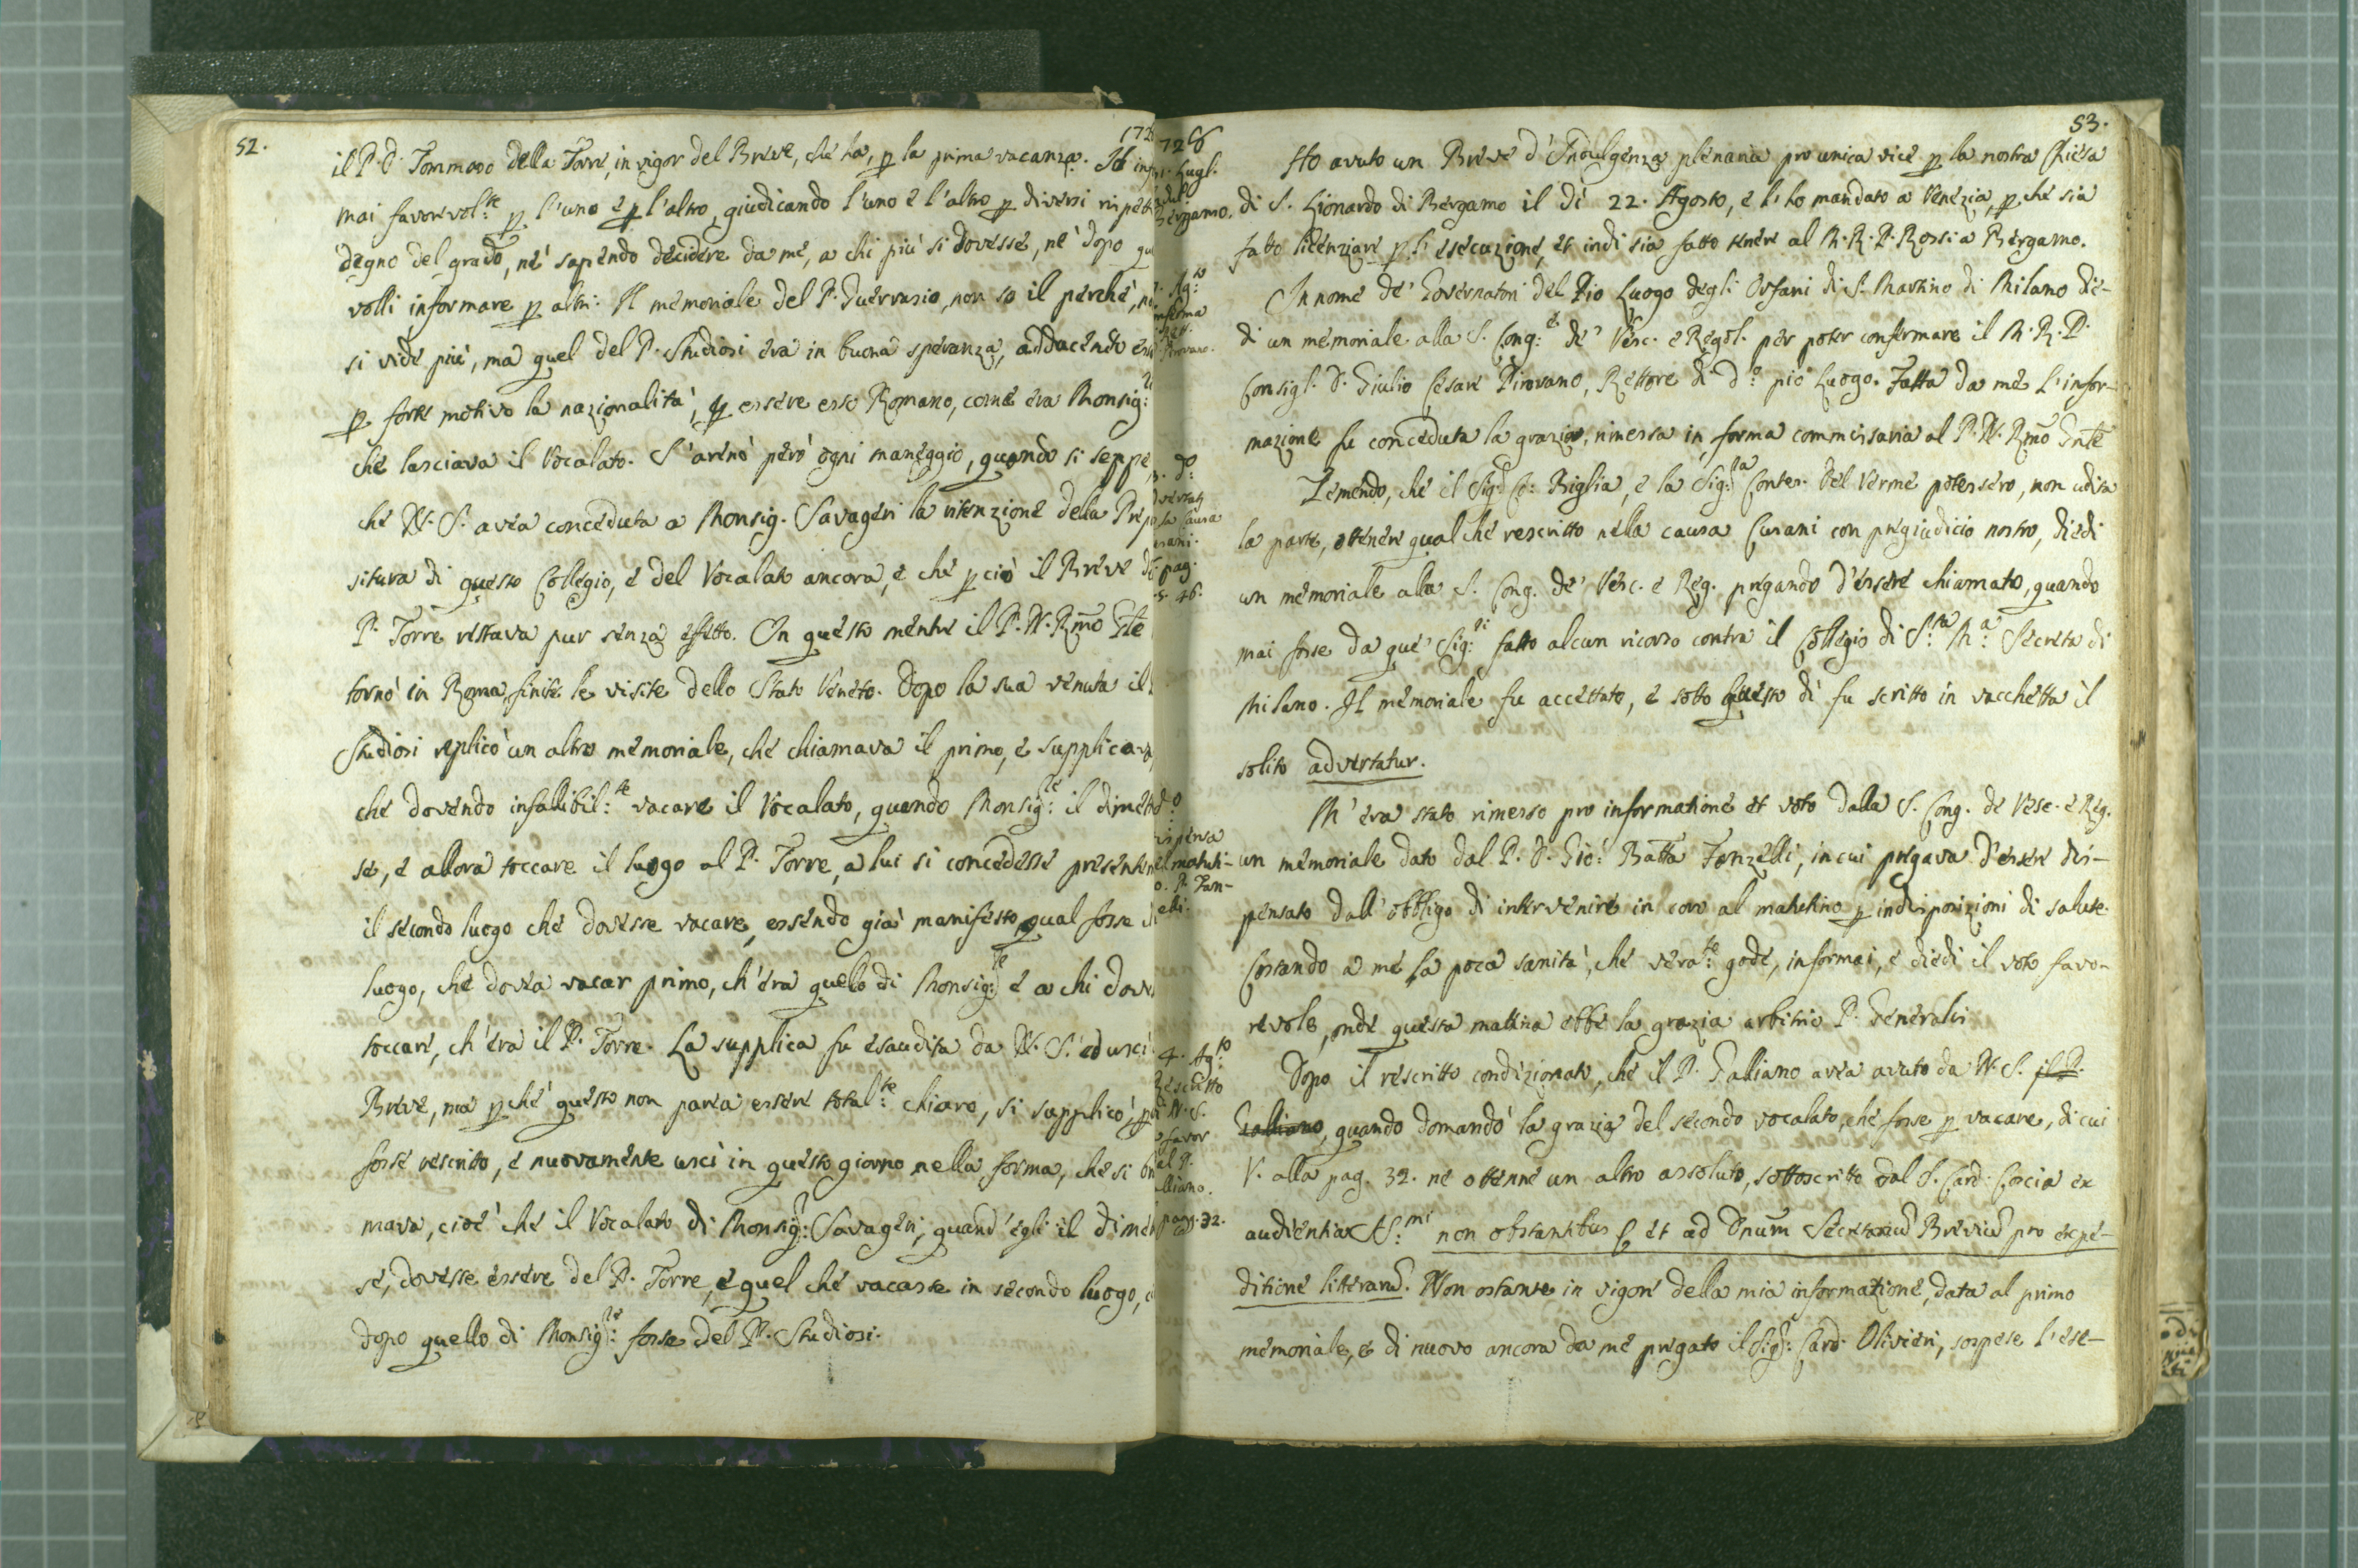 52.
172
il P. D. Tommaso della Torre, in vigor del Breve, che ha, p la prima vacanza. Io
mai favorevol:te p l'uno e p l'altro, giudicando l'uno e l'altro p diversi rispet
degno del grado, né sapendo decidere da me, a chi più si dovesse, né dopo
volli informare p altri. Il memoriale del P. Guerrasio, non so il perché,
si vide più, ma quel del P. Studiosi era in buona speranza, adducendo
p forte motivo la nazionalità, p essere esso Romano, come era Monsig:
che lasciava il Vocalato. S'arenò però ogni maneggio, quando si seppe
che N. S. avea conceduta a Monsig. Savageri la ritenzione della Prepo
situra di questo Collegio, e del Vocalato ancora, e che p ciò il Breve
P. Torre restava pur senza effetto. In questo mentre il P. N. Rmo Gnle
tornò in Roma, finite le visite dello Stato Veneto. Dopo la sua venuta il
Studiosi replicò un altro memoriale, che chiamava il primo, e supplicava
che dovendo infallibil:te vacare il Vocalato, quando Monsig:re il dimet
se, e allora toccare il luogo al P. Torre, a lui si concedesse presente
il secondo luogo che dovesse vacare, essendo già manifesto qual fosse
luogo, che dovea vacar primo, ch'era quello di Monsig:re e a chi dove
toccare, ch'era il P. Torre. La supplica fu esaudita da N. S. ed uscì
Breve, ma p ché questo non parea essere total:te chiaro, si supplicò,
fosse rescritto, e nuovamente uscì in questo giorno nella forma, che si
mava, cioè che il Vocalato di Monsig:r Savageri, quand'egli il dimet
se, dovesse essere del P. Torre, e quel che vacasse in secondo luogo,
dopo quello di Monsig:re fosse del P. Studiosi.
53.
726
Lugl.
Bergamo.
Ho avuto un Breve d'Indulgenza plenaria pro unica vice p la nostra Chiesa
di S. Lionardo di Bergamo il dì 22. Agosto, e l'ho mandato a Venezia, p ché sia
fatto licenziare p l'esecuzione, et indi sia fatto tenere al M. R. P. Rossi a Bergamo.
Ag:to
In nome de' Governatori del Pio Luogo degli Orfani di S. Martino di Milano die-
di un memoriale alla S. Cong:e de' Vesc. e Regol. per poter confermare il M. R. P.
Consigl. D. Giulio Cesare Pirovano, Rettore di d:o pio Luogo. Fatta da me l'infor-
mazione fu conceduta la grazia, rimessa in forma commissaria al P. N. Rmo Gnle
d:o
causa
pag.
46.
Temendo, che il Sig:r Co: Biglia, e la Sig:ra Contes. Del Verme potessero, non udita
la parte, ottenere qualche rescritto nella causa Cusani con pregiudicio nostro, diedi
un memoriale alla S. Cong. de' Vesc. e Reg. pregando d'essere chiamato, quando
mai fosse da que' Sig:ri fatto alcun ricorso contra il Collegio di S:ta M:a Secreta di
Milano. Il memoriale fu accettato, e sotto questo dì fu scritto in vacchetta il
solito advertatur.
M'era stato rimesso pro informatione et voto dalla S. Cong. de Vesc. e Reg.
un memoriale dato dal P. D. Gio: Batta Fanzelli, in cui pregava d'essere dis-
pensato dall'obbligo di intervenire in coro al mattutino p indisposizioni di salute.
Costando a me la poca sanità, che vera:te gode, informai, e diedi il voto favo-
revole, onde questa mattina ebbe la grazia arbitrio P. Generalis
4. Ag:to
Rescritto
N. S.
favor
al P.
lliano.
pag. 32.
Dopo il rescritto condizionato, che il P. Galliano avea avuto da N. S. il P.
Galliano, quando domandò la grazia del secondo vocalato, che fosse p vacare, di cui
V. alla pag. 32. ne ottenne un altro assoluto, sottoscritto dal S. Card. Coscia ex
audientia SS:mi non obstantibus et ad Dnum Secretariu Breviu pro expe-
ditione litteraru. Non ostante in vigore della mia informazione, data al primo
memoriale, e di nuovo ancora da me pregato il Sig:r Card. Olivieri, sospese l'ese-